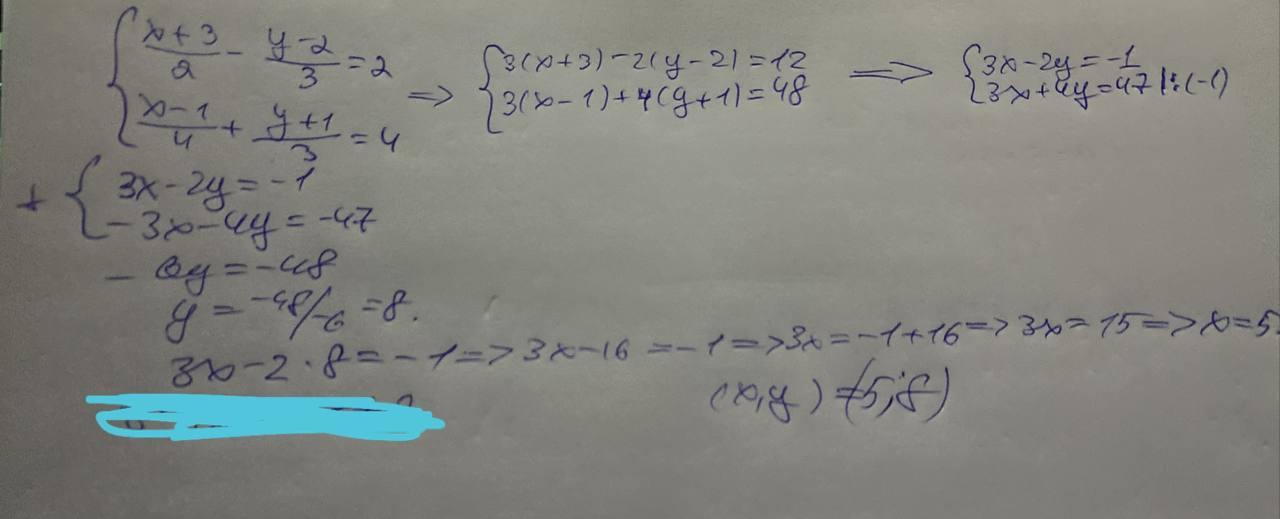 { (x+3)/2 - (y-2)/3 = 2 => { 3(x+3) - 2(y-2) = 12 => { 3x - 2y = -1
(x-1)/4 + (y+1)/3 = 4 3(x-1) + 4(y+1) = 48 3x + 4y = 47 |:(-1)
+ { 3x - 2y = -1
-3x - 4y = -47
- 6y = -48
y = -48/-6 = 8.
3x - 2 · 8 = -1 => 3x - 16 = -1 => 3x = -1 + 16 => 3x = 15 => x = 5
(x, y) = (5; 8)